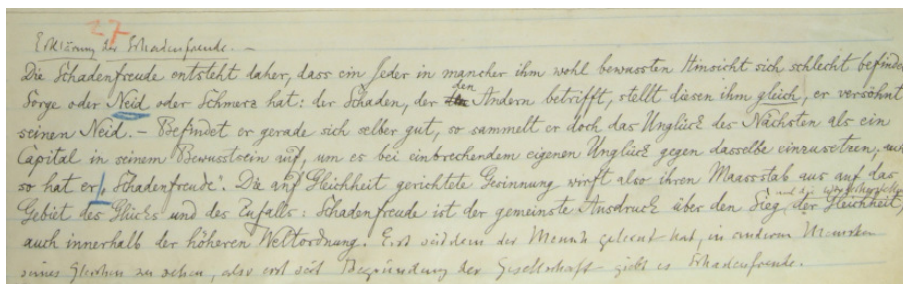 27
Erklärung der Schadenfreude. —
Die Schadenfreude entsteht daher, dass ein Jeder in mancher ihm wohl bewussten Hinsicht sich schlecht befindet
Sorge oder Neid oder Schmerz hat: der Schaden, der den Andern betrifft, stellt diesen ihm gleich, er versöhnt
seinen Neid. — Befindet er gerade sich selber gut, so sammelt er doch das Unglück des Nächsten als ein
Capital in seinem Bewusstsein auf, um es bei einbrechendem eigenen Unglück gegen dasselbe einzusetzen; auch
so hat er „Schadenfreude“. Die auf Gleichheit gerichtete Gesinnung wirft also ihren Maassstab aus auf das
Gebiet des Glücks und des Zufalls: Schadenfreude ist der gemeinste Ausdruck über den Sieg und die Wiederherstellung der Gleichheit,
auch innerhalb der höheren Weltordnung. Erst seitdem der Mensch gelernt hat, in anderen Menschen
seines Gleichen zu sehen, also erst seit Begründung der Gesellschaft giebt es Schadenfreude.